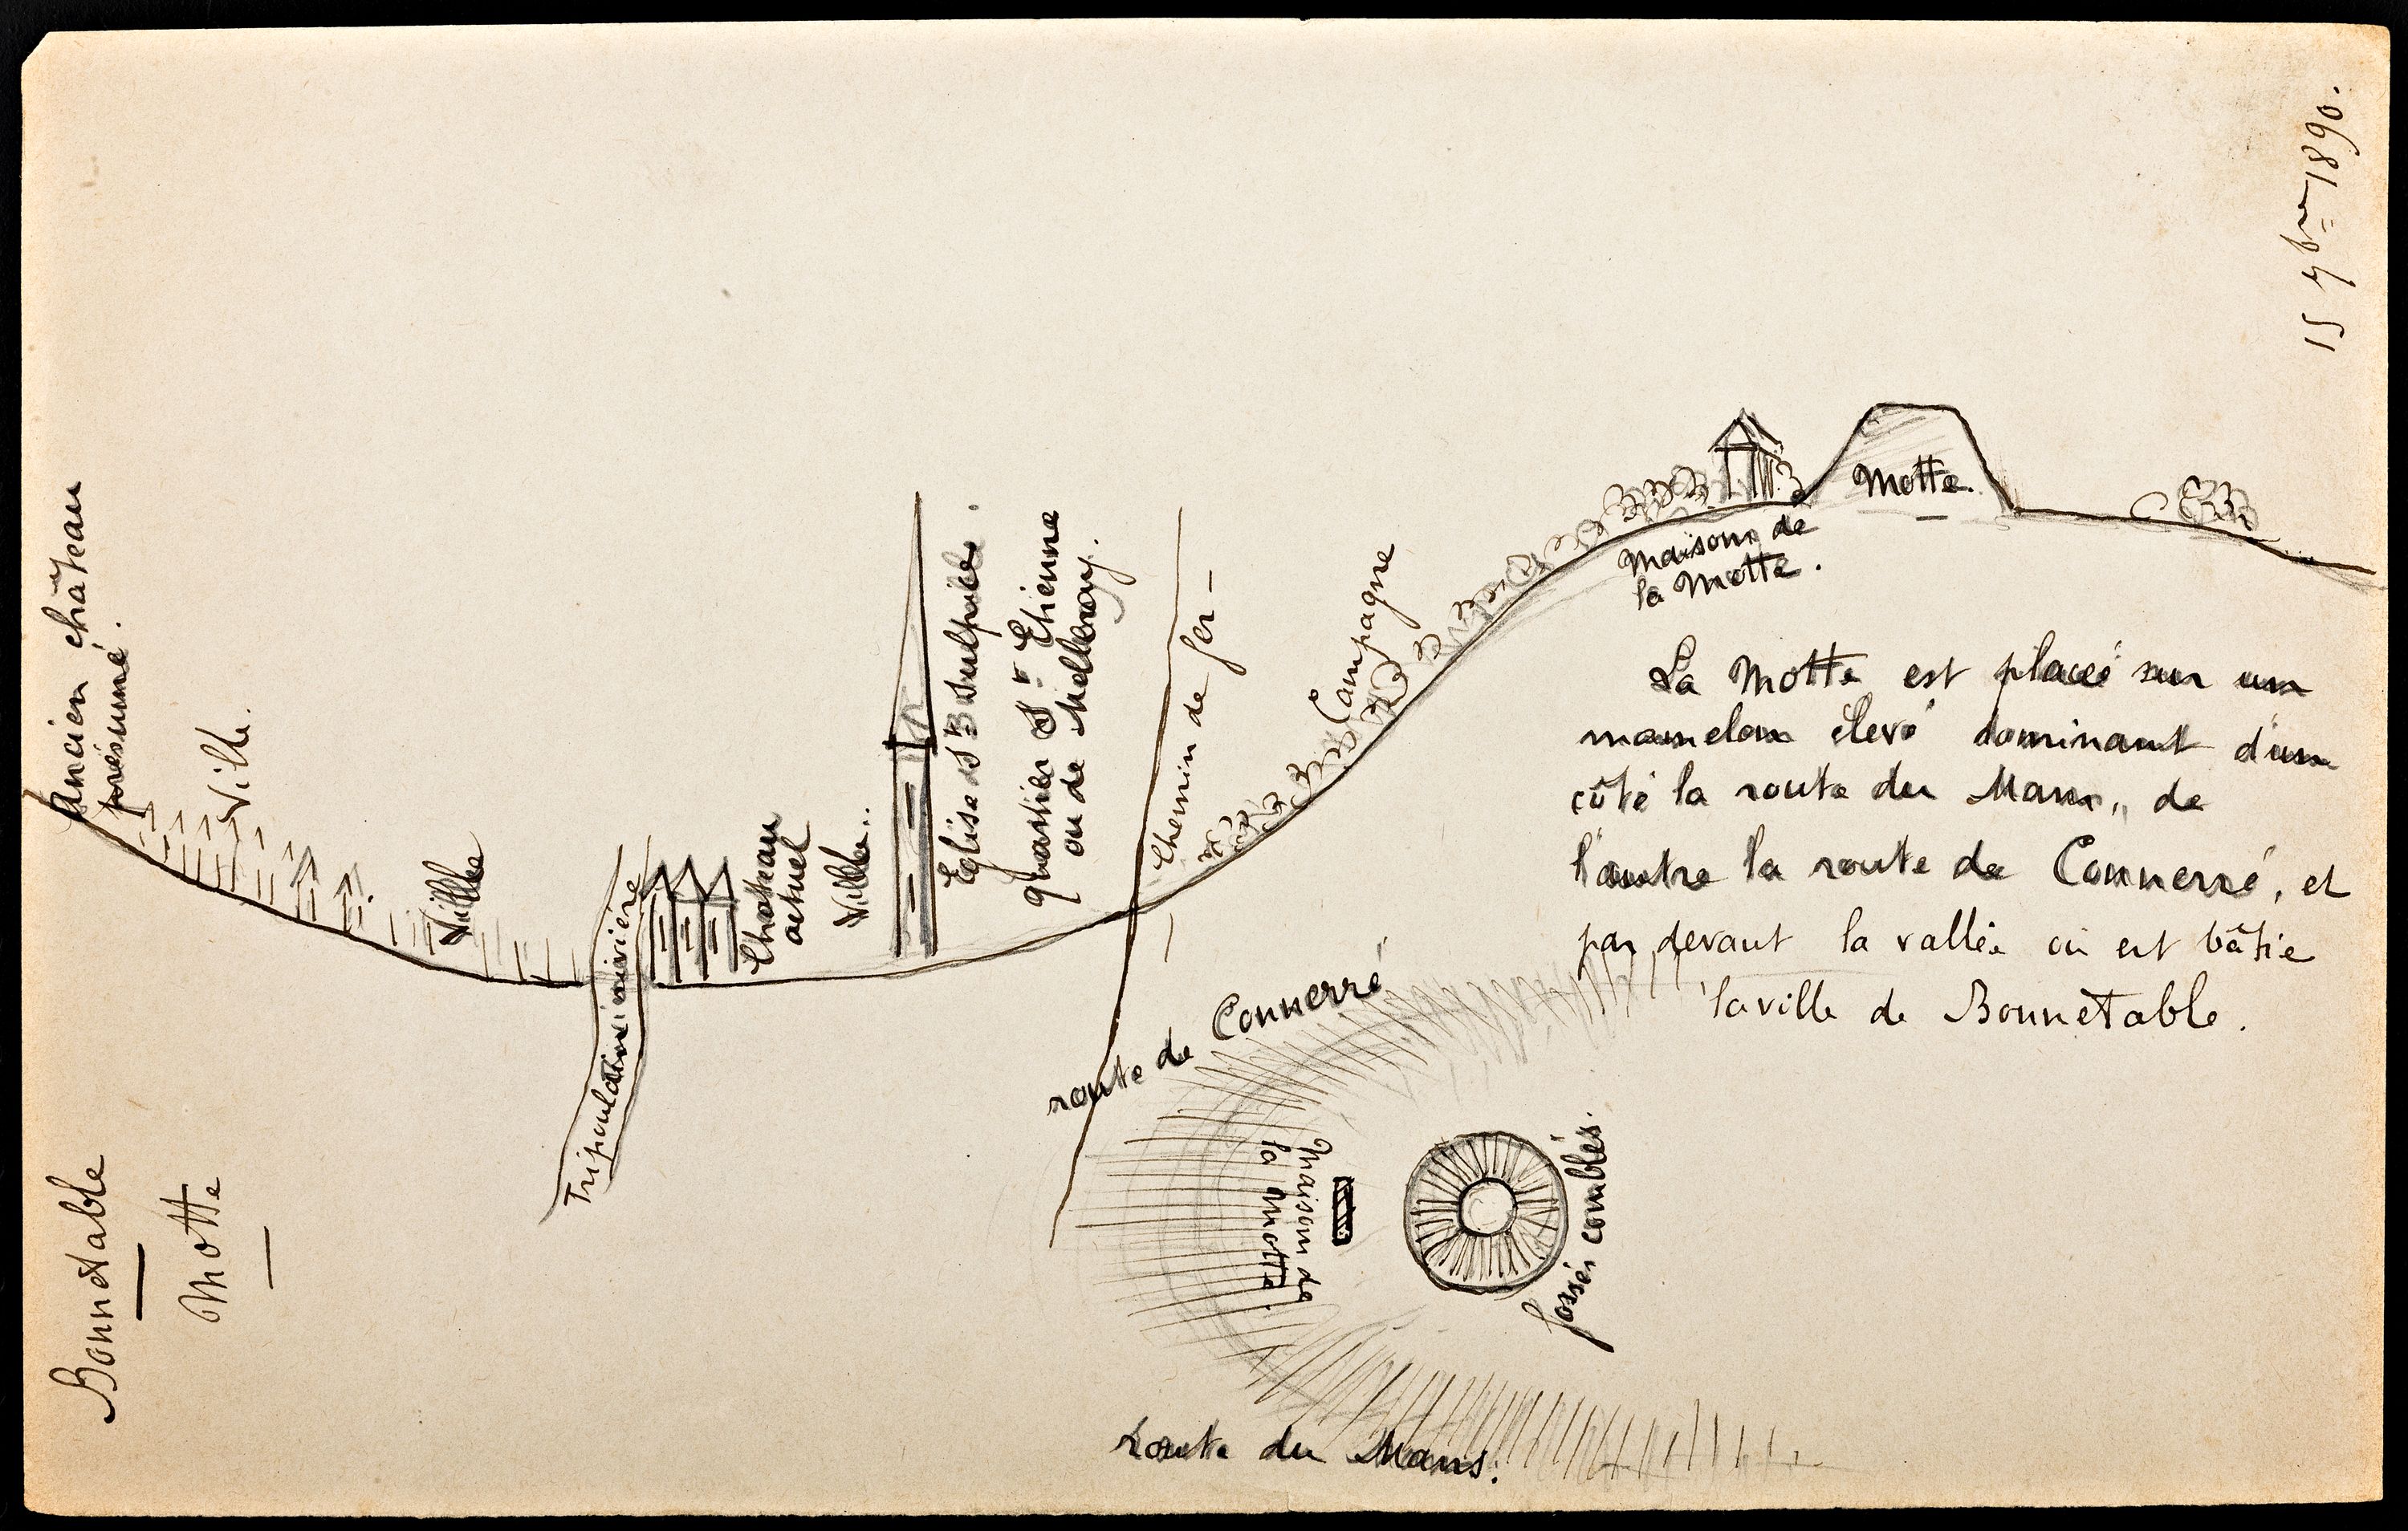 15 7bre 1890.
Ancien château
présumé.
Ville.
Ville
rivière
Chateau
actuel
Ville..
Eglise St Sulpice.
quartier St Etienne
ou de
Chemin de fer —
Campagne
Maison de
la Motte.
Motte.
La Motte est placé sur un
mamelon élevé dominant d'un
côté la route du Mans, de
l'autre la route de Connerré, et
par devant la vallée où est bâtie
la ville de Bonnetable.
route de Connerré
Maison de
la motte.
fossés comblés.
route du Mans.
Bonnetable
Motte